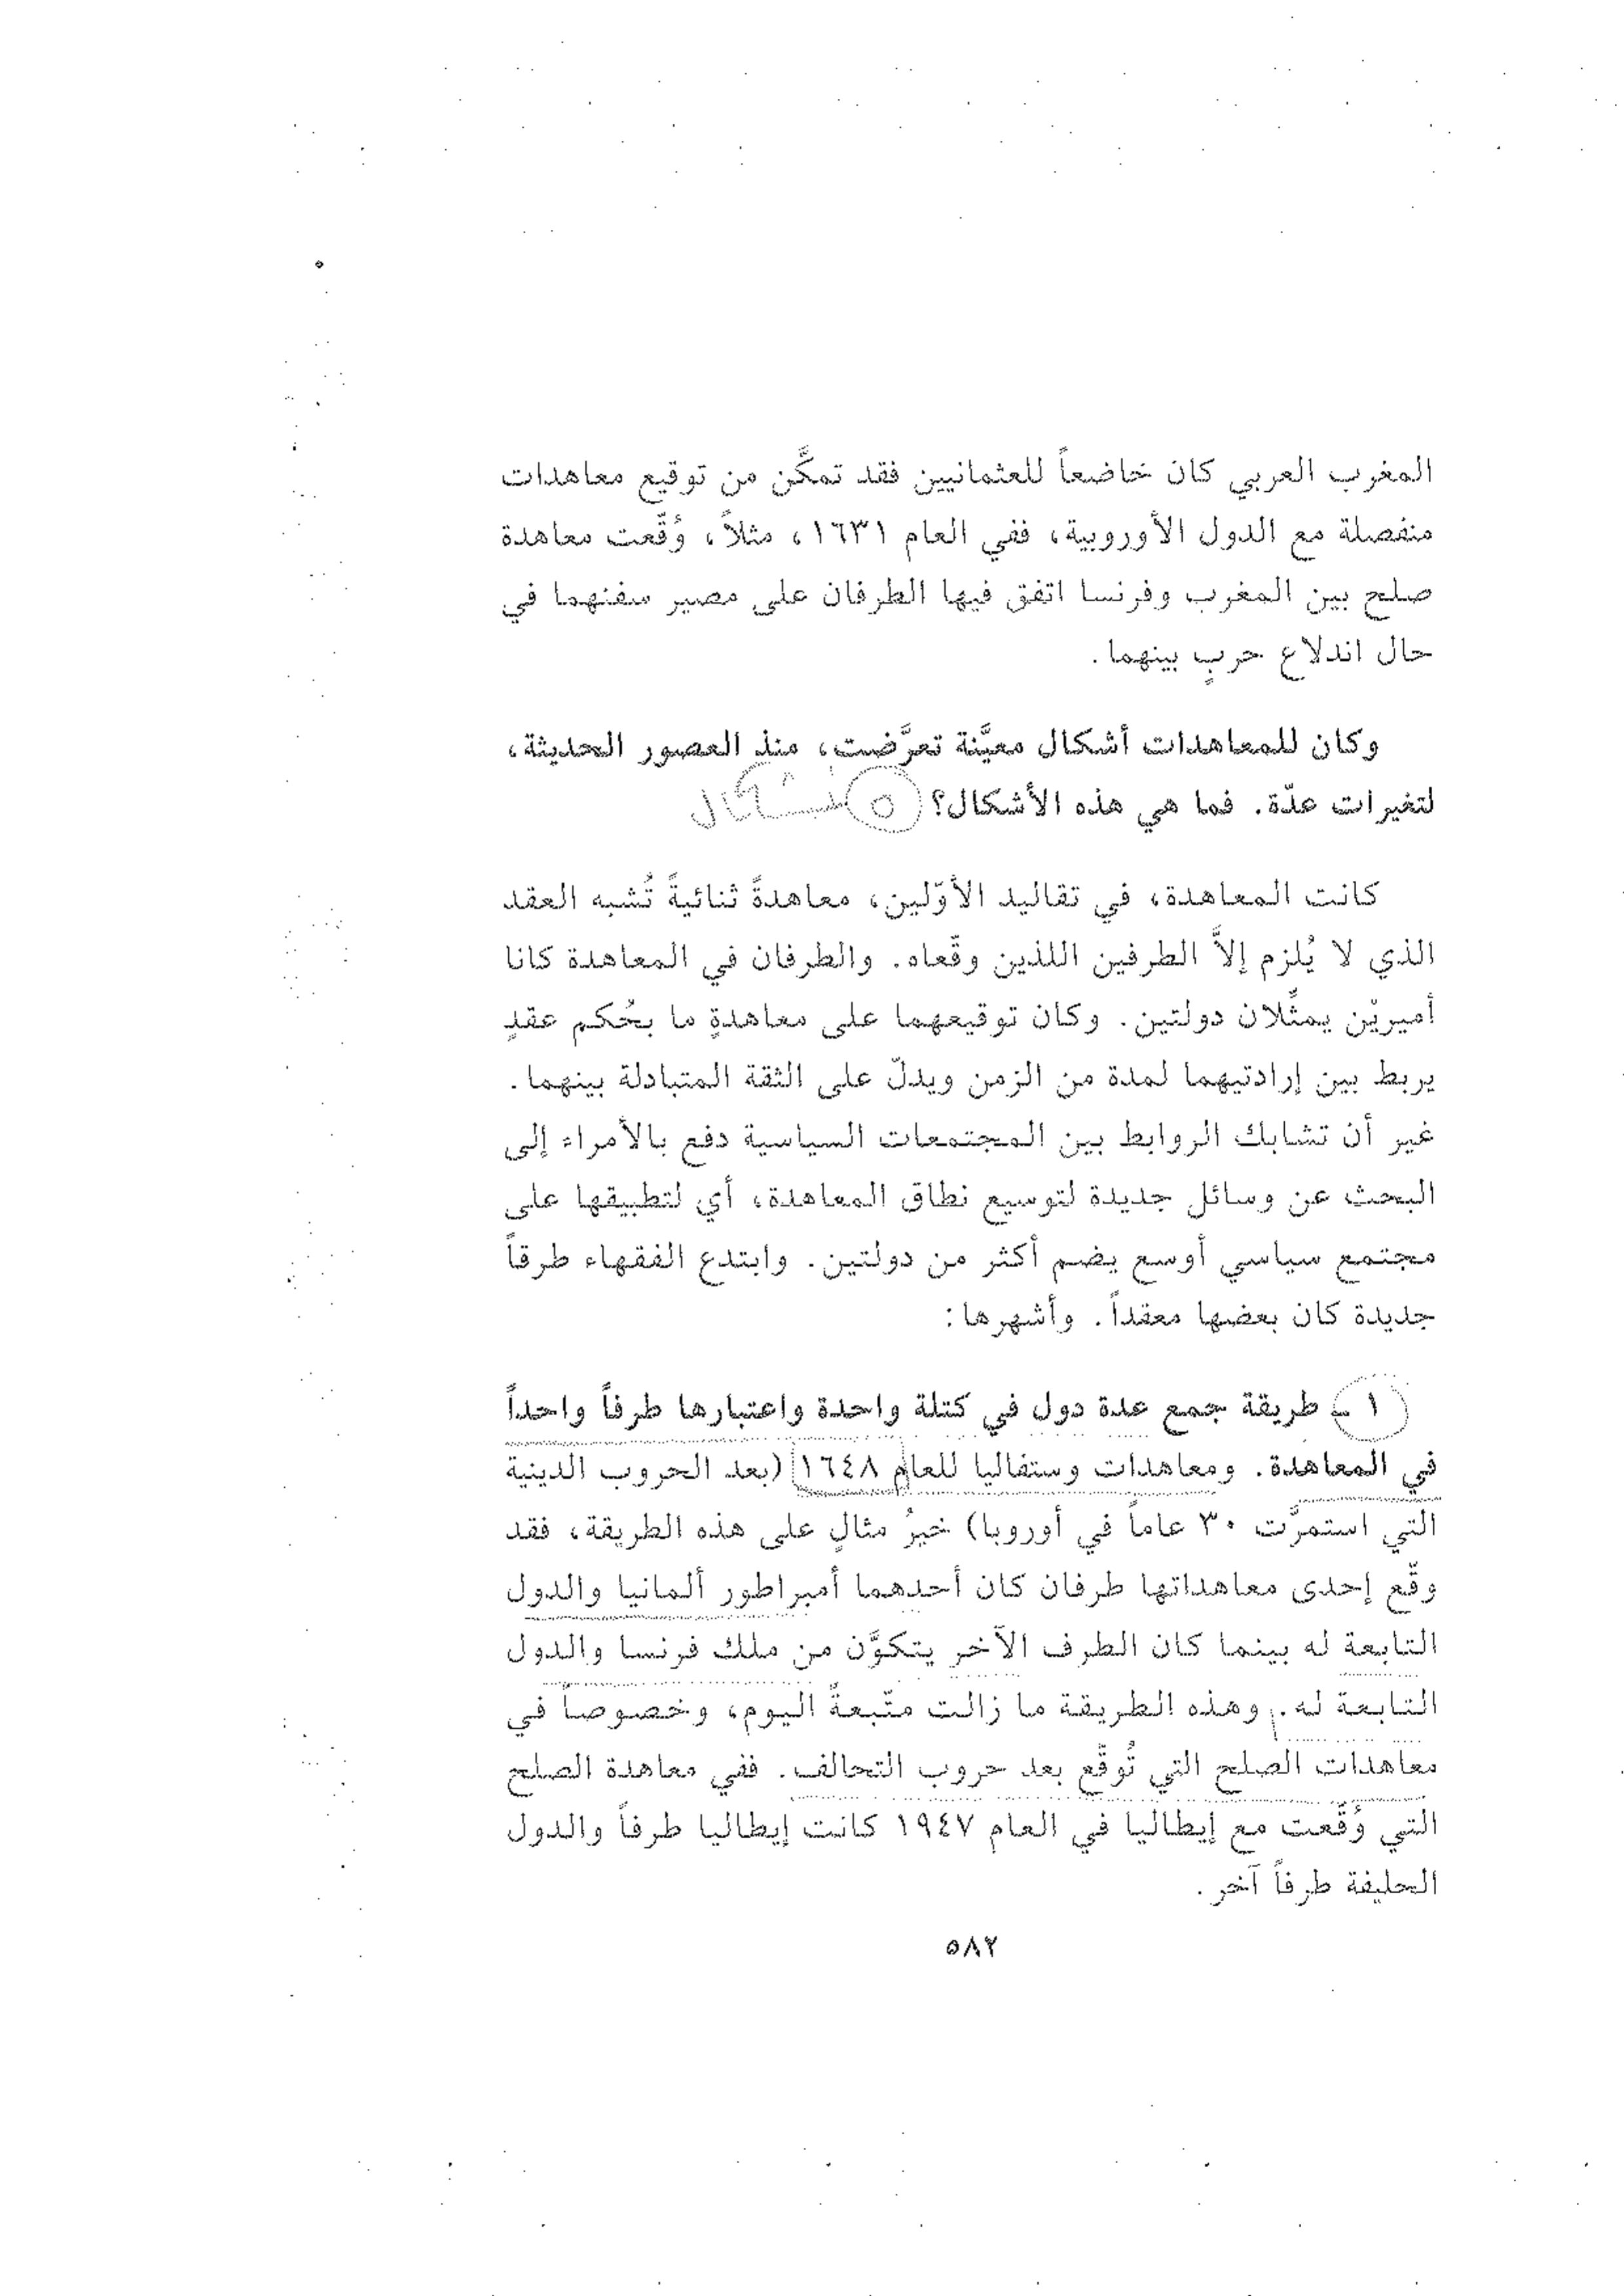 المغرب العربي كان خاضعاً للعثمانيين فقد تمكَّن من توقيع معاهدات
منفصلة مع الدول الأوروبية، ففي العام ١٦٣١، مثلاً، وُقّعت معاهدة
صلح بين المغرب وفرنسا اتفق فيها الطرفان على مصير سفنهما في
حال اندلاع حربٍ بينهما.
وكان للمعاهدات أشكال معيَّنة تعرَّضت، منذ العصور الحديثة،
لتغيرات عدّة. فما هي هذه الأشكال؟ ٥
كانت المعاهدة، في تقاليد الأوّلين، معاهدةً ثنائيةً تُشبه العقد
الذي لا يُلزم إلاَّ الطرفين اللذين وقّعاه. والطرفان في المعاهدة كانا
أميريْن يمثِّلان دولتين. وكان توقيعهما على معاهدةٍ ما بحُكم عقدٍ
يربط بين إرادتيهما لمدة من الزمن ويدلّ على الثقة المتبادلة بينهما.
غير أن تشابك الروابط بين المجتمعات السياسية دفع بالأمراء إلى
البحث عن وسائل جديدة لتوسيع نطاق المعاهدة، أي لتطبيقها على
مجتمع سياسي أوسع يضم أكثر من دولتين. وابتدع الفقهاء طرقاً
جديدة كان بعضها معقداً. وأشهرها:
١ - طريقة جمع عدة دول في كتلة واحدة واعتبارها طرفاً واحداً
في المعاهدة. ومعاهدات وستفاليا للعام ١٦٤٨ (بعد الحروب الدينية
التي استمرَّت ٣٠ عاماً في أوروبا) خيرُ مثالٍ على هذه الطريقة، فقد
وقّع إحدى معاهداتها طرفان كان أحدهما أمبراطور ألمانيا والدول
التابعة له بينما كان الطرف الآخر يتكوَّن من ملك فرنسا والدول
التابعة له. وهذه الطريقة ما زالت متّبعةً اليوم، وخصوصاً في
معاهدات الصلح التي تُوقَّع بعد حروب التحالف. ففي معاهدة الصلح
التي وُقّعت مع إيطاليا في العام ١٩٤٧ كانت إيطاليا طرفاً والدول
الحليفة طرفاً آخر.
٥٨٢